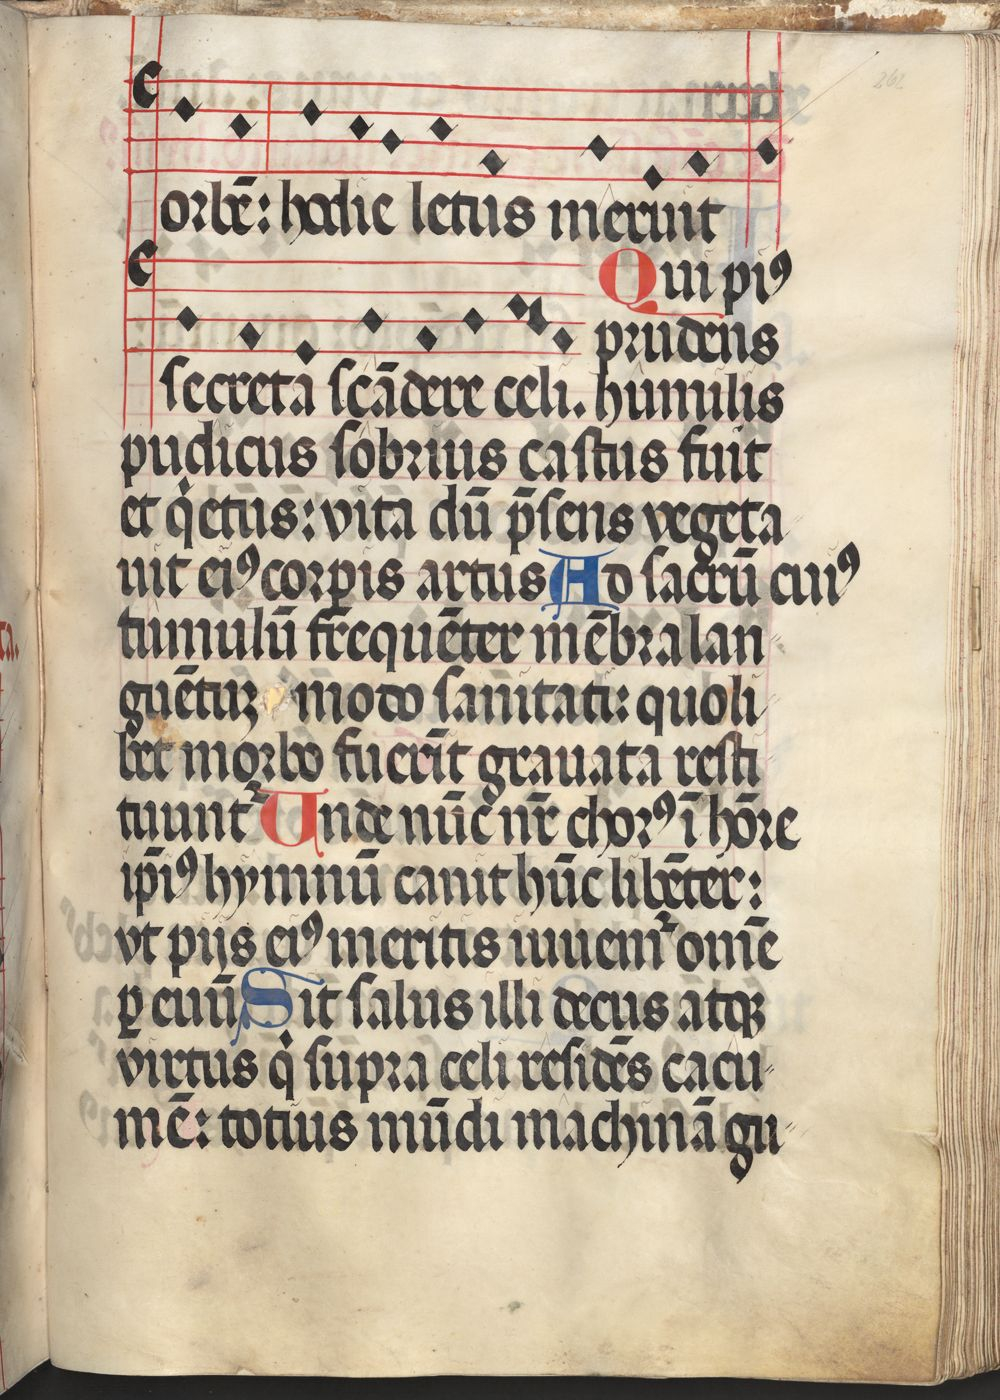 orbē: hodie letus meruit
Qui piꝰ
prudens
secreta scādere celi. humilis
pudicus sobrius castus fuit
et q̇etus: vita dū p̄sens vegeta
uit eiꝰ corꝑis artus Ad sacrū cuiꝰ
tumulū frequēter mēbra lan
guētiꝫ modo sanitati: quoli
bet morbo fuerīt grauata resti
tuunt᷑ Unde nūc nr̄ chorꝰ ī hōre
ip̄iꝰ hymnū canit hūc libēter:
vt pijs eiꝰ meritis iuuem᷑ om̄e
ꝑ euū Sit salus illi decus atqꝫ
virtus q̇ supra celi residēs cacu
mē: totius mūdi machinā gu
262